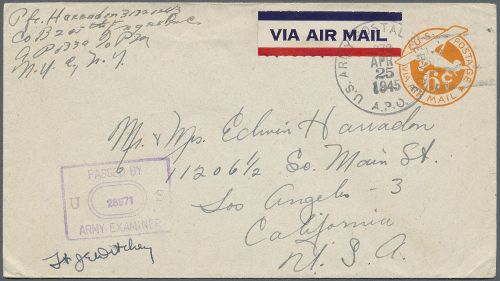 Pfc. Harradon
Co B 20th
N.Y.C, N.Y.
VIA AIR MAIL
U.S. ARMY POSTAL
APR
25
1945
A.P.O.
U.S. POSTAGE
6¢
VIA AIR MAIL
Mr. & Mrs. Edwin Harradon
11206 1/2 So. Main St.
Los Angeles - 3
California
U. S. A.
PASSED BY
U 28971 S
ARMY EXAMINER